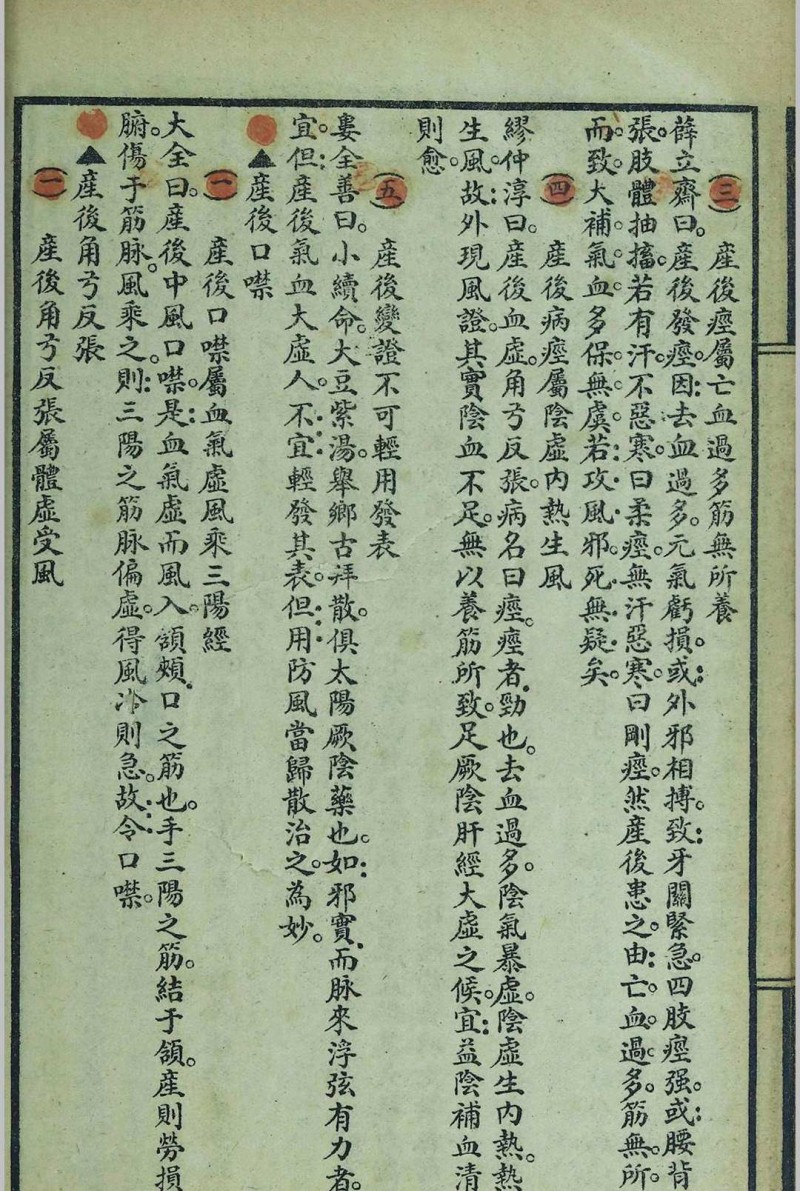 (三)　產後痙屬亡血過多筋無所養
薛立齋曰。產後發痙。因去血過多。元氣虧損。或外邪相搏。致牙關緊急。四肢痙强。或腰背
張。肢體抽搐。若有汗不惡寒。曰柔痙。無汗惡寒。曰剛痙。然產後患之。由亡血過多。筋無所
而致。大補氣血。多保無虞。若攻風邪。死無疑矣。
(四)　產後病痙屬陰虛內熱生風
繆仲淳曰。產後血虛。角弓反張。病名曰痙。痙者。勁也。去血過多。陰氣暴虛。陰虛生內熱。熱
生風。故外現風證。其實陰血不足。無以養筋所致。足厥陰肝經大虛之候。宜益陰補血清
則愈。
(五)　產後變證不可輕用發表
婁全善曰。小續命。大豆紫湯。舉鄉古拜散。俱太陽厥陰藥也。如邪實。而脉來浮弦有力者。
宜。但產後氣血大虛人。不宜輕發其表。但用防風當歸散治之。為妙。
●▲產後口噤
(一)　產後口噤屬血氣虛風乘三陽經
大全曰。產後中風口噤。是血氣虛而風入頷頰口之筋也。手三陽之筋。結于頷。產則勞損
腑。傷于筋脉。風乘之。則三陽之筋脉偏虛。得風冷則急。故令口噤。
●▲產後角弓反張
(一)　產後角弓反張屬體虛受風